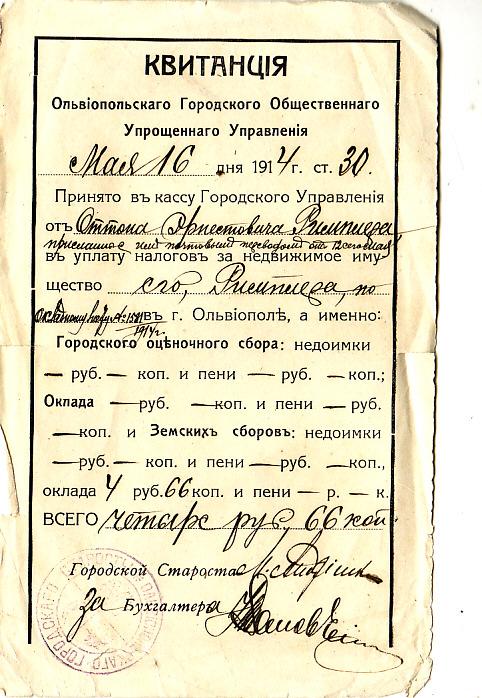 КВИТАНЦІЯ
Ольвіопольскаго Городского Общественнаго
Упрощеннаго Управленія
Мая 16 дня 1914г. ст. 30.
Принято въ кассу Городского Управленія
отъ Оттона Эрнестовича Римплера
присланное имъ почтовымъ переводомъ отъ 12 сего мая
въ уплату налоговъ за недвижимое иму
щество его, Римплера, по
окладному листу въ г. Ольвіополѣ, а именно:
1914г.
Городского оцѣночнаго сбора: недоимки
— руб. — коп. и пени — руб. — коп.;
Оклада — руб. — коп. и пени — руб.
— коп. и Земскихъ сборовъ: недоимки
— руб. — коп. и пени — руб. — коп.,
оклада 4 руб. 66 коп. и пени — р. — к.
ВСЕГО четыре руб. 66 коп.
Городской Староста
За Бухгалтера